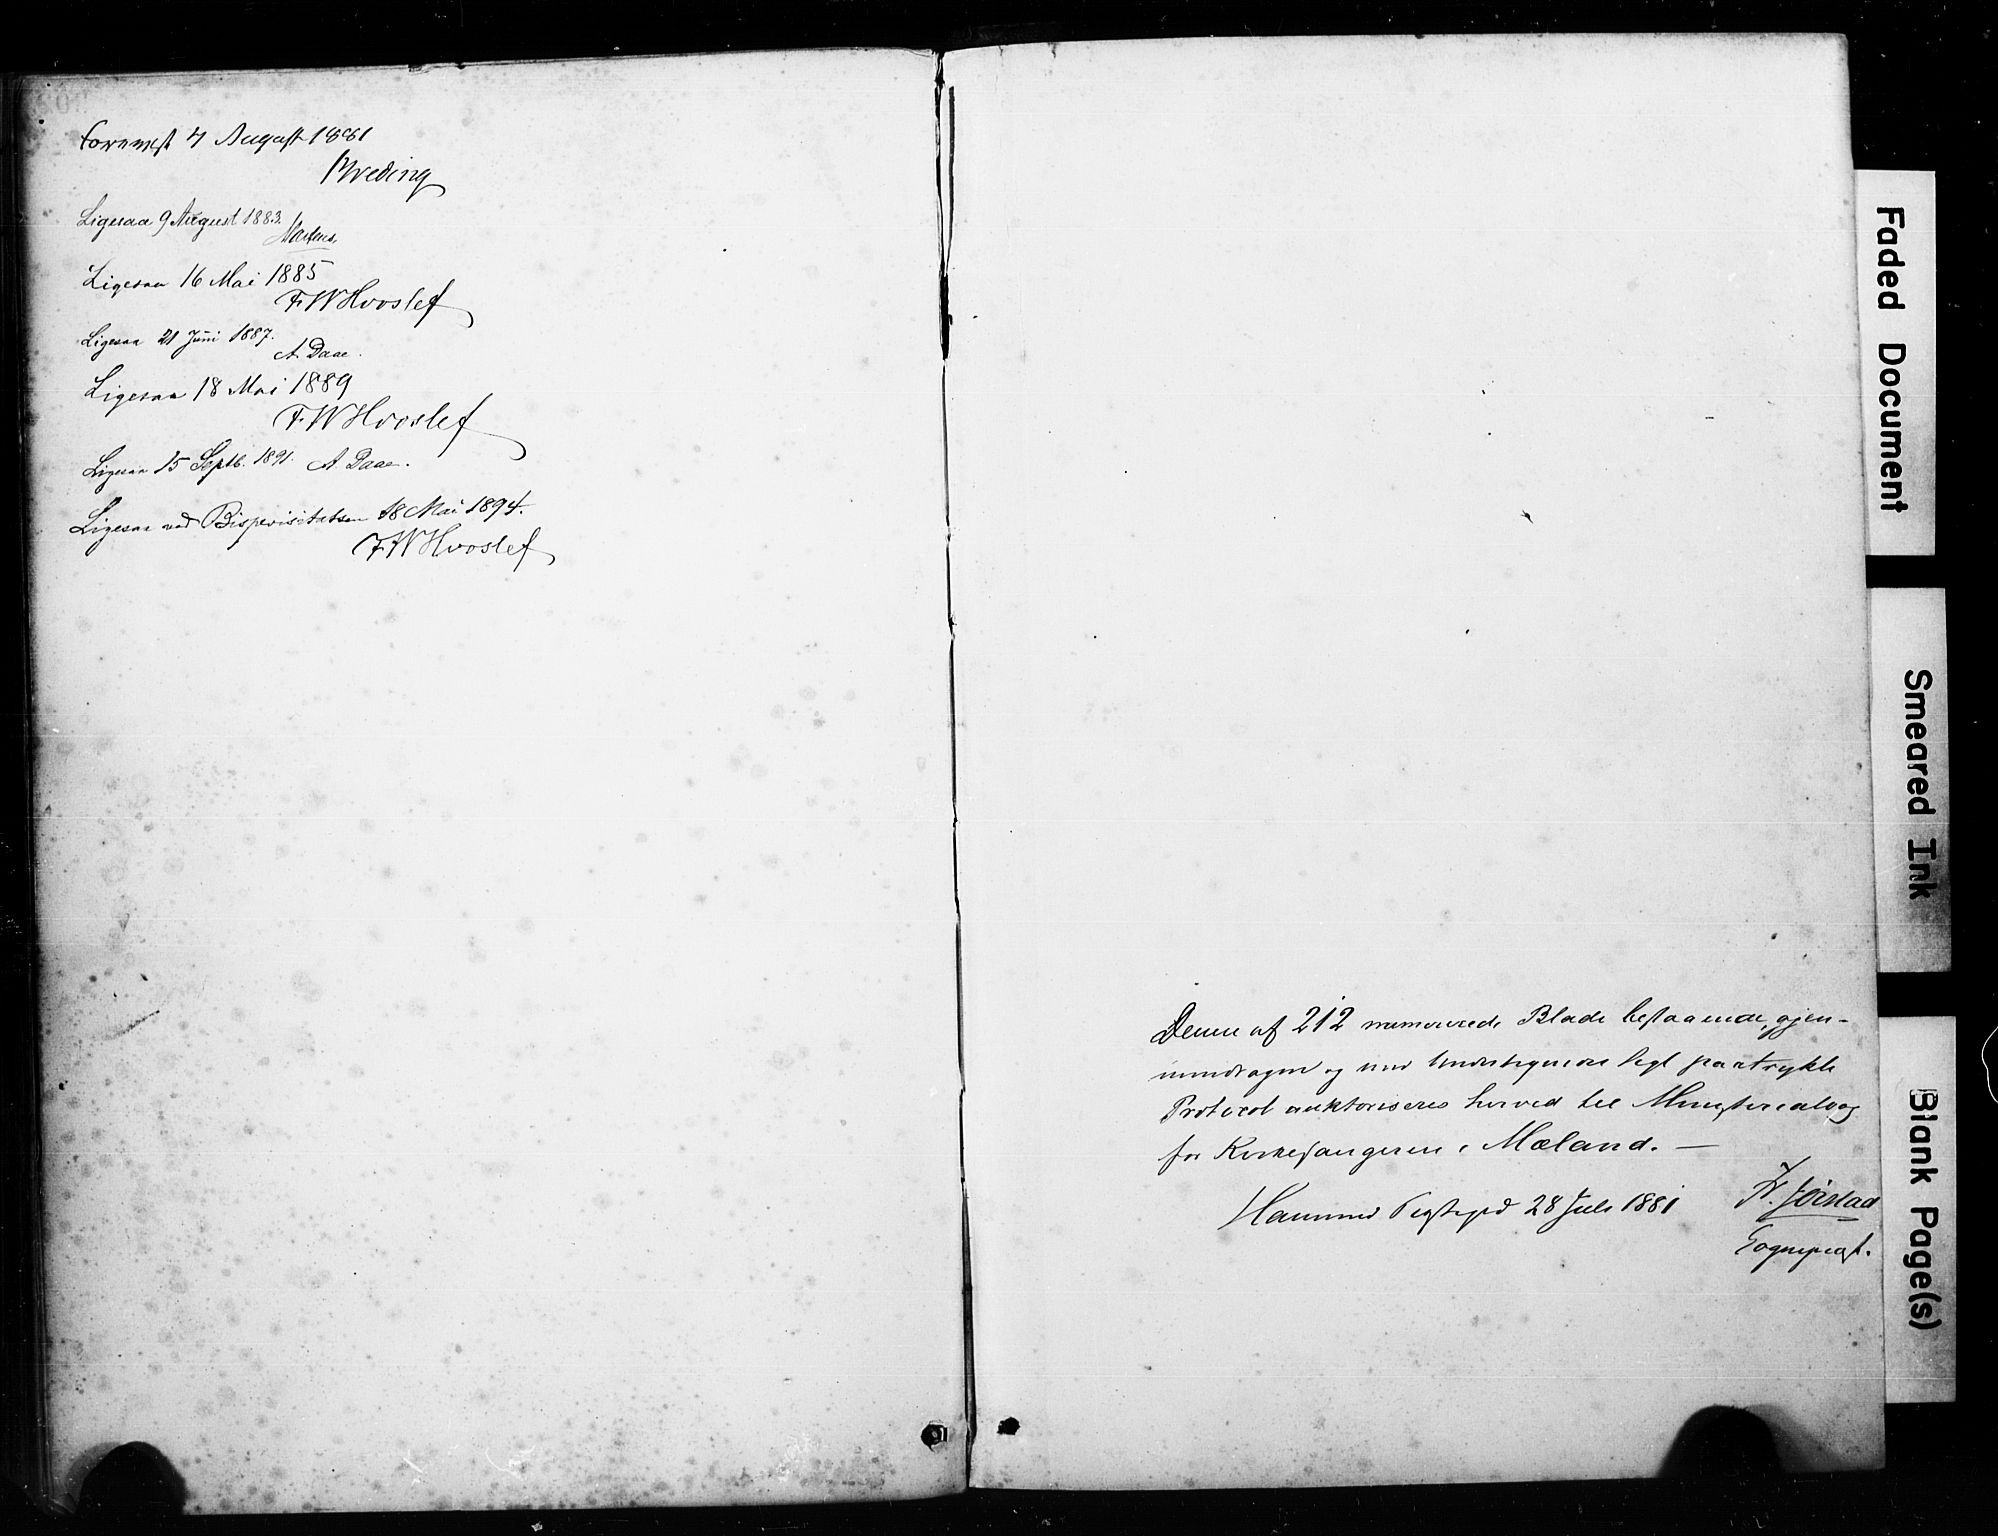 Forevist 4 August 1881
Breding
Ligesaa 9 August 1883.
Martens
Ligesaa 16 Mai 1885
F.W Hvoslef
Ligesaa 21 Juni 1887.
A. Daae.
Ligesaa 18 Mai 1889
F.W Hvoslef
Ligesaa 15 Septb. 1891. A. Daae.
Ligesaa ved Bispevisitatsen 18 Mai 1894.
F.W Hvoslef
Denne af 212 numererede Blade bestaaende, gjen-
nemdragne og med Undertegnedes Segl paatrykte
Protocol auktoriseres herved til Ministerialbog
for Kirkesangeren i Mæland. —
Præstegd 28 Juli 1881
Fr. Jörstad
Sognepræst.
Faded Document
Smeared Ink
Blank Page(s)